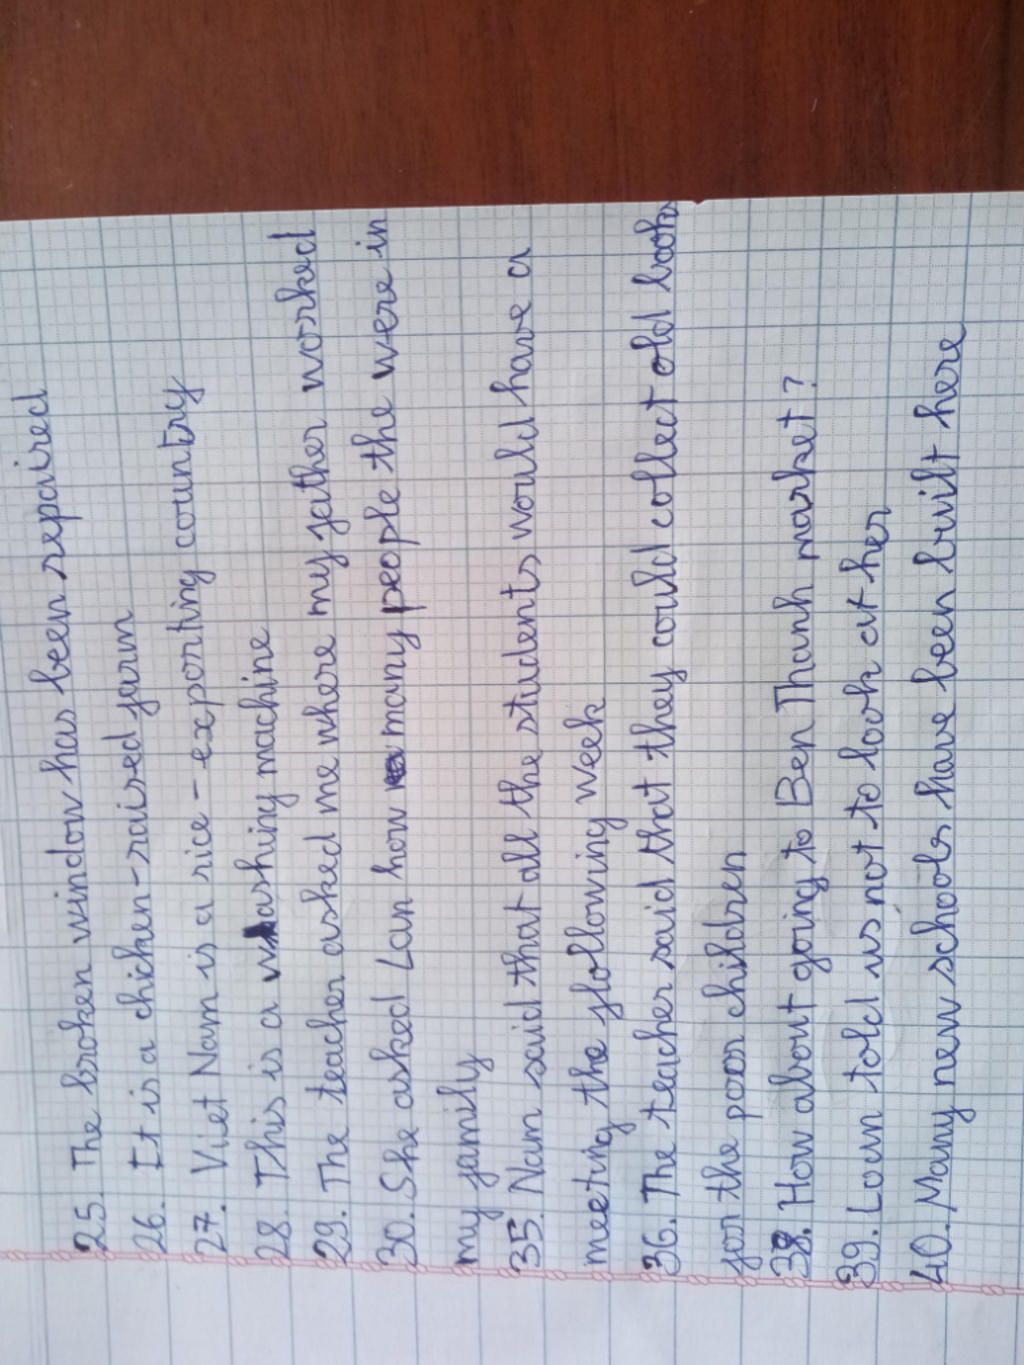 25. The broken window has been repaired
26. It is a chicken-raised farm
27. Viet Nam is a rice-exporting country
28. This is a washing machine
29. The teacher asked me where my father worked
30. She asked Lan how many people the were in
my family
35. Nam said that all the students would have a
meeting the following week
36. The teacher said that they could collect old books
for the poor children
38. How about going to Ben Thanh market?
39. Loan told us not to look at her
40. Many new schools have been built here